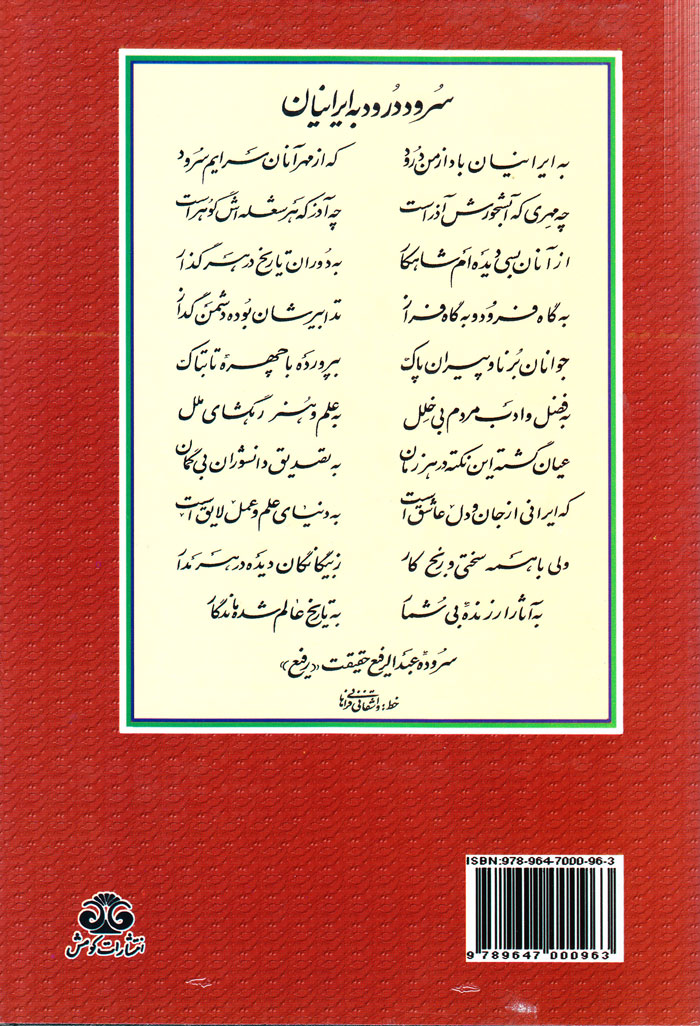 سرود درود به ایرانیان
به ایرانیان باد از من درود که از مهر آنان سرایم سرود
چه مهری که آبشخورش آذر است چه آذر که هر شعله اش گوهر است
از آنان بسی دیده ام شاهکار به دوران تاریخ در هر گذار
به گاه فرود و به گاه فراز تدابیرشان بوده دشمن گداز
جوانان برنا و پیران پاک بپرورده با چهرهٔ تابناک
به فضل و ادب مردم بی خلل به علم و هنر رهگشای ملل
عیان گشته این نکته در هر زمان به تصدیق دانشوران بی گمان
که ایرانی از جان و دل عاشق است به دنیای علم و عمل لایق است
ولی با همه سختی و رنج کار ز بیگانگان دیده در هر مدار
به آثار ارزندهٔ بی شمار به تاریخ عالم شده ماندگار
سرودهٔ عبدالرفیع حقیقت «رفیع»
خط:
ISBN:978-964-7000-96-3
9 789647 000963
انتشارات کومش